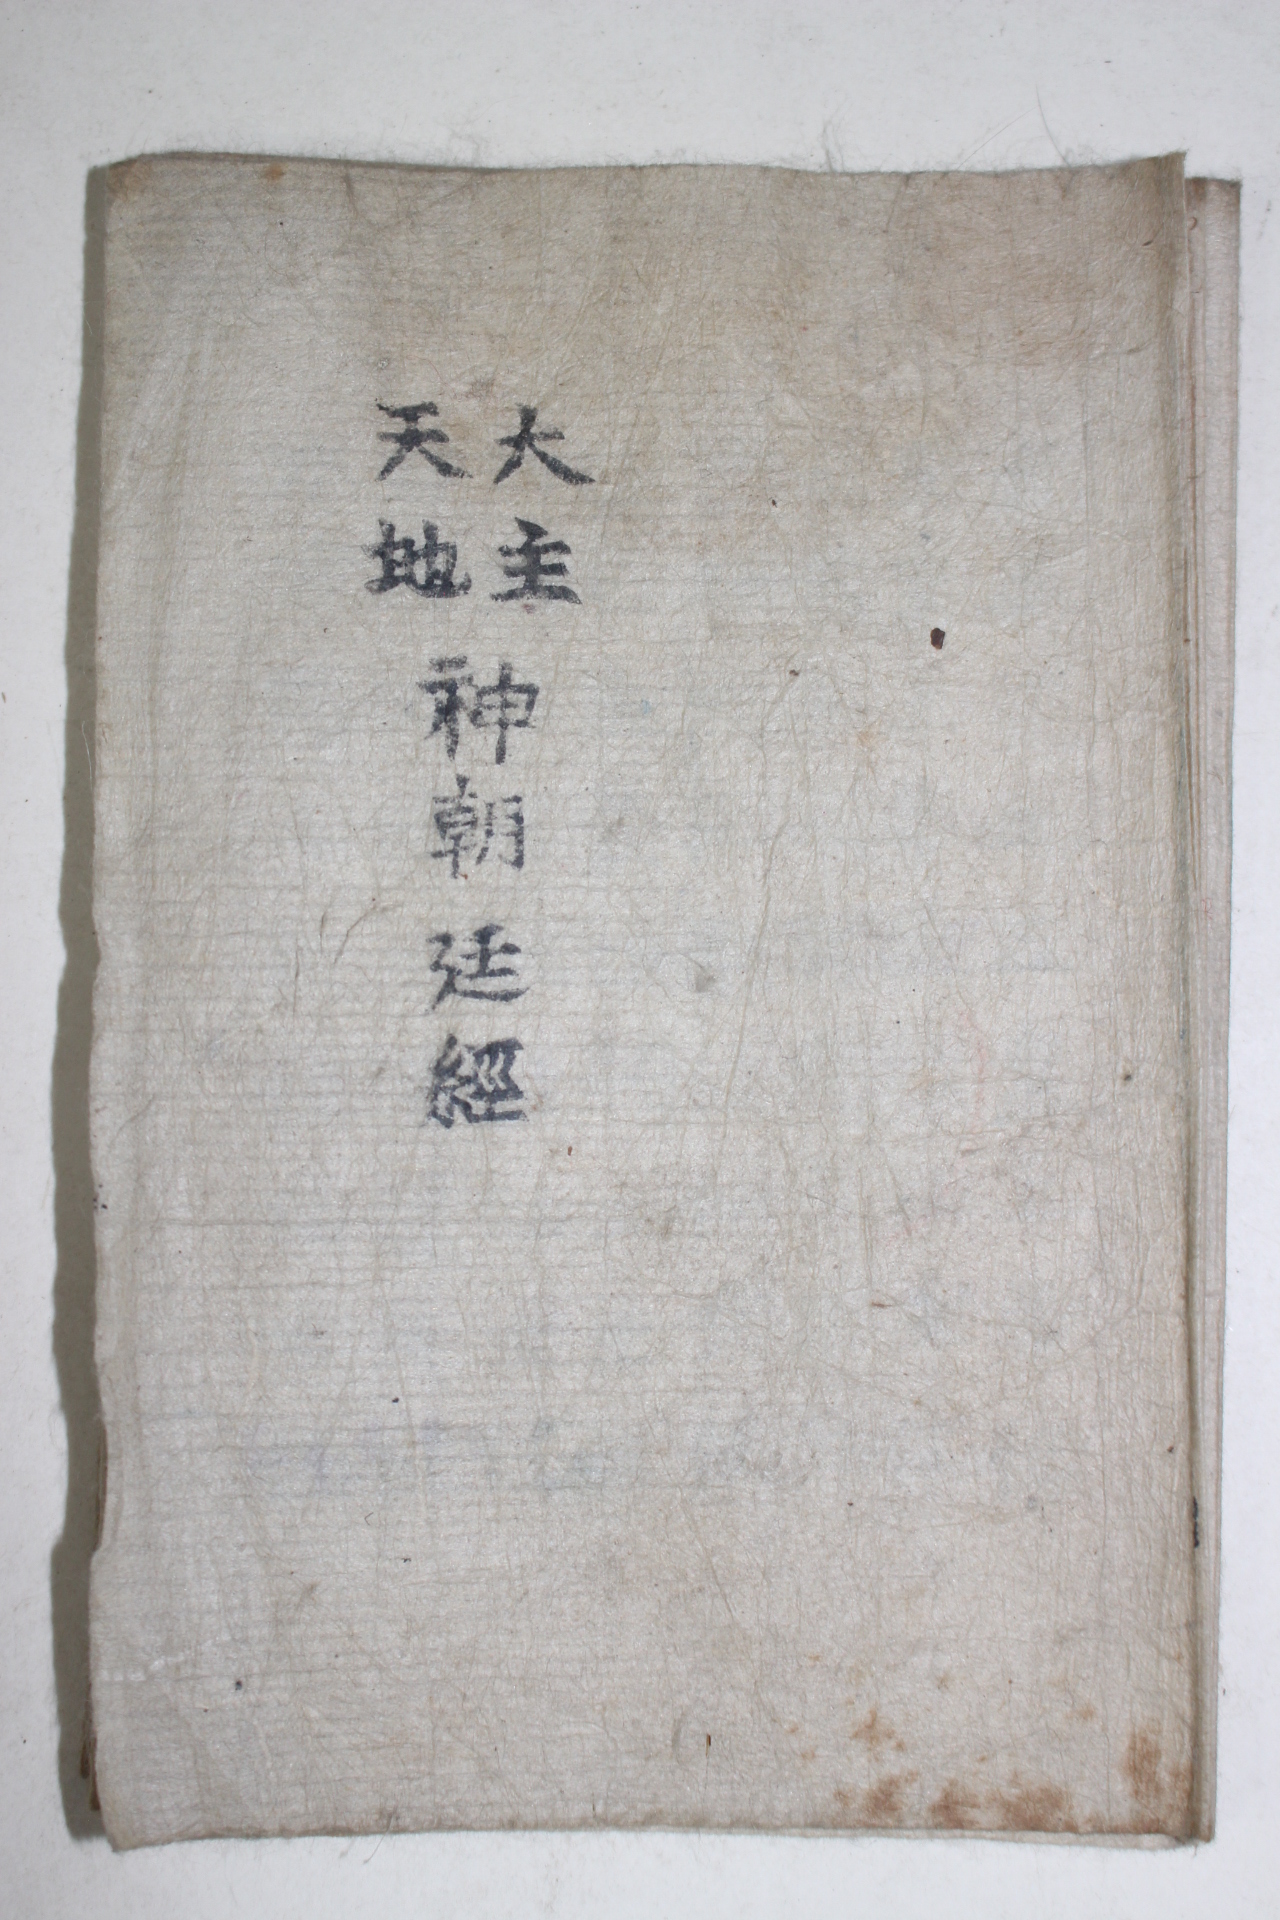 大主
天地
神朝廷經